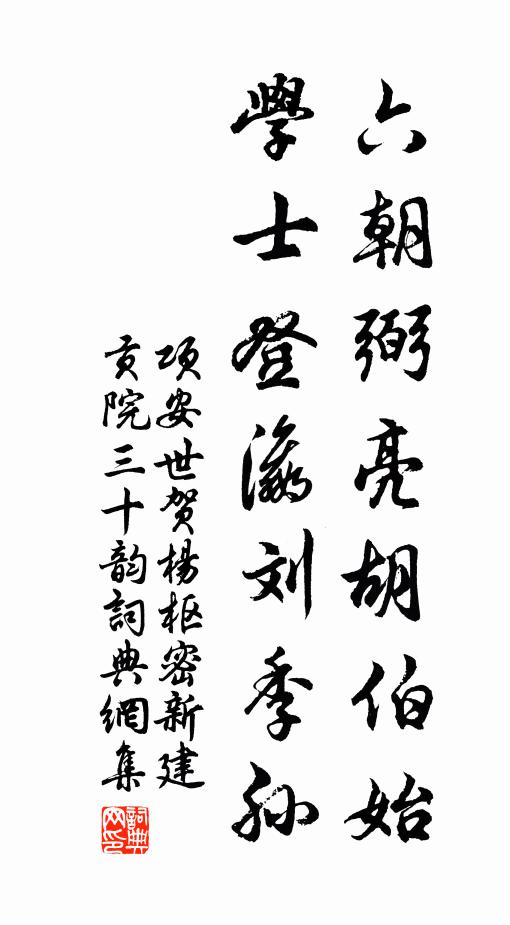 六朝弼亮胡伯始
學士登瀛刘季孙
项安世贺楊枢密新建
贡院三十韵詞典網集
詞典
网印